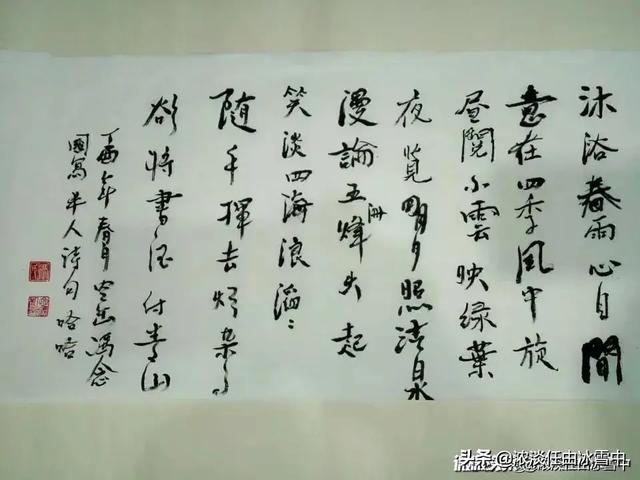 沐浴春雨心自閒
意在四季風中旋
昼閱小雲映绿葉
夜览明月照清泉
漫論五洲烽火起
笑淡四海浪滔〻
随手揮去烦杂事
欲将書酒付青山
丁酉年春月 馮念
國寫半人詩句哈哈
头条 @浓淡任由冰雪中